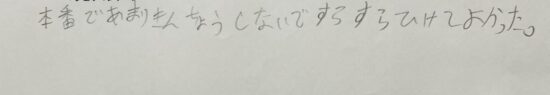 本番であまりきんちょうしないですらすらひけてよかった。